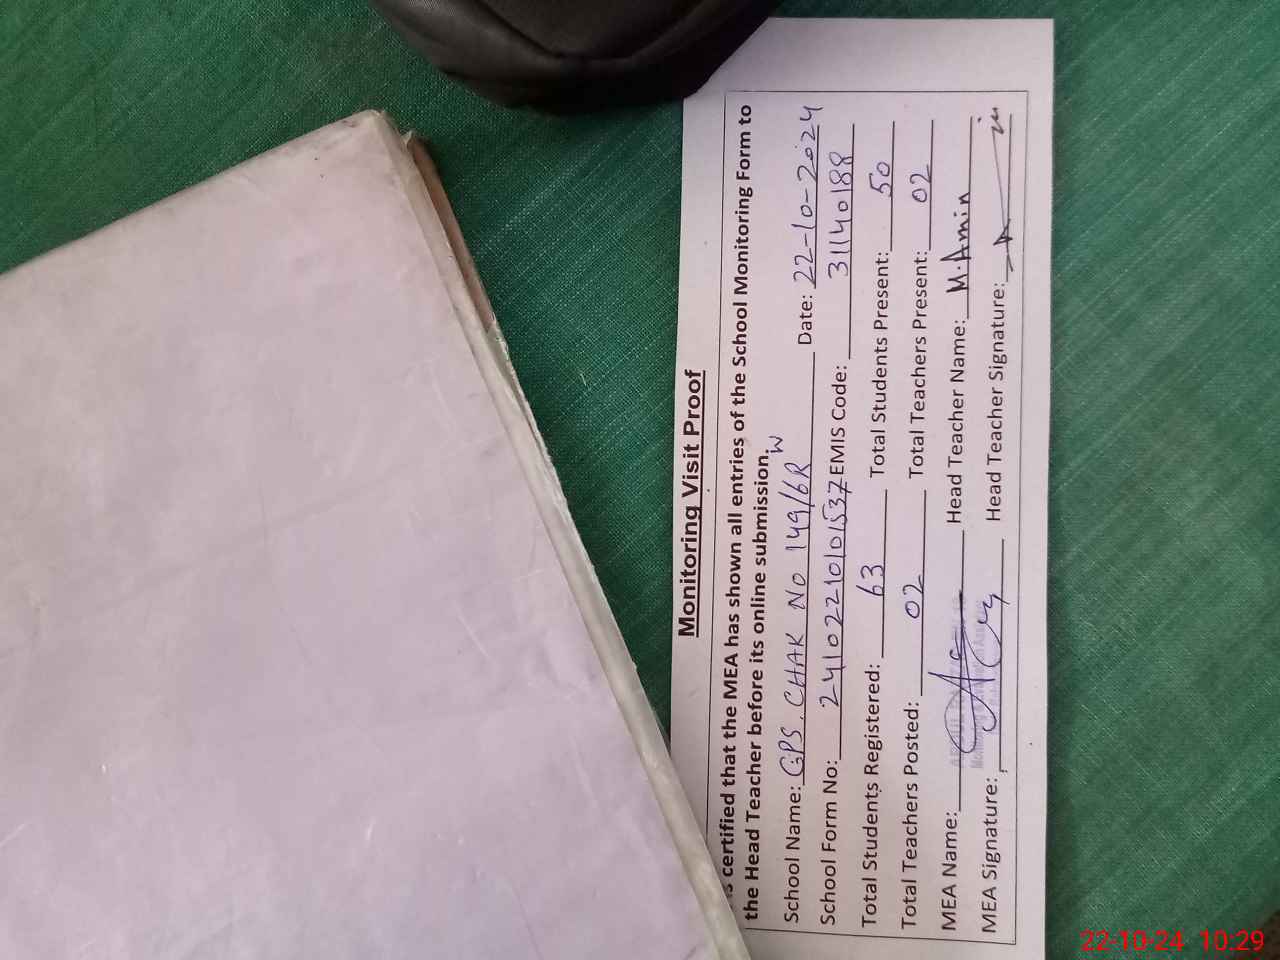 Monitoring Visit Proof
is certified that the MEA has shown all entries of the School Monitoring Form to
the Head Teacher before its online submission.
School Name: GPS. CHAK NO 149/6R W Date: 22-10-2024
School Form No: 24102210101537 EMIS Code: 31140188
Total Students Registered: 63 Total Students Present: 50
Total Teachers Posted: 02 Total Teachers Present: 02
MEA Name: Head Teacher Name: M.Amin
MEA Signature: Head Teacher Signature:
22-10-24 10:29